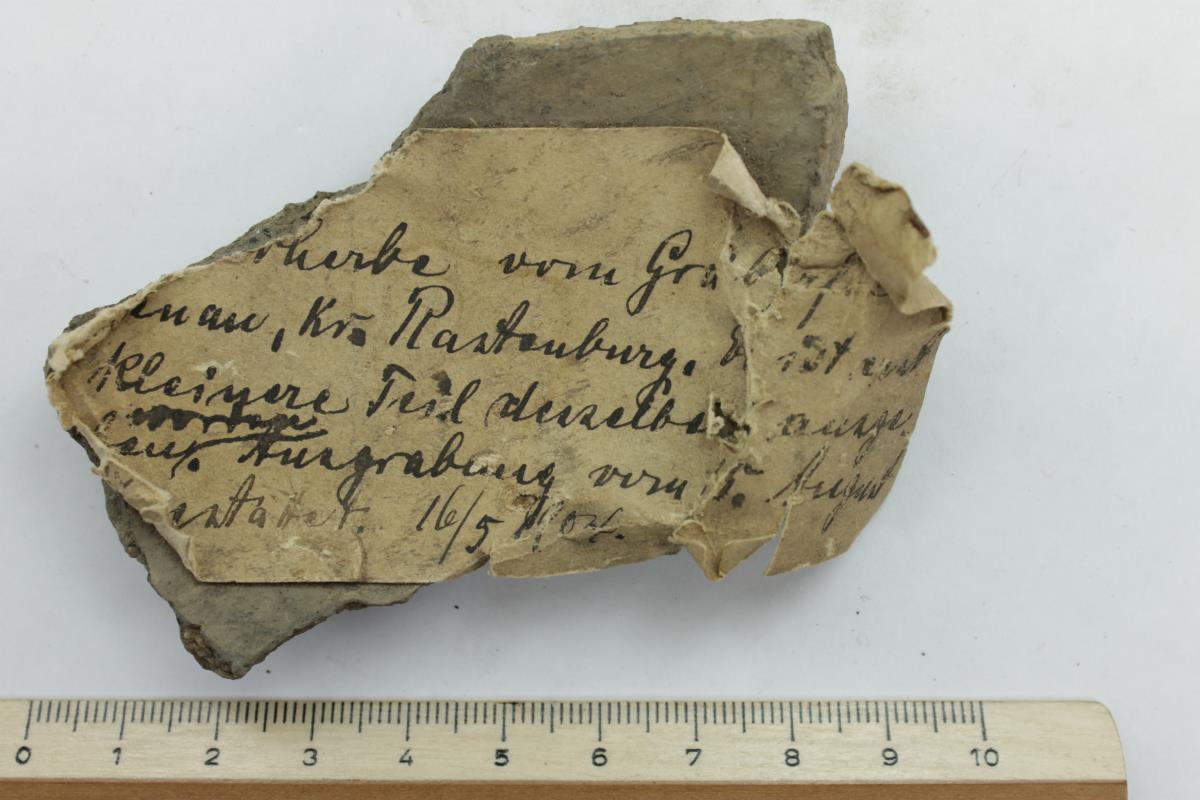 cherbe vom Grä
enau, Kr. Rastenburg. Es ist erst
kleinere Teil derselben ausge
worden
Ausgrabung vom 15. August
erstattet. 16/5 1904.
0 1 2 3 4 5 6 7 8 9 10